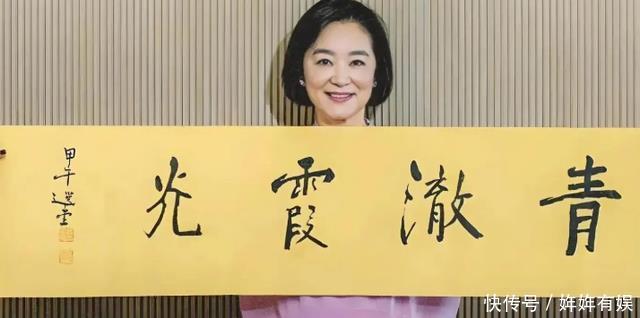 青澈霞光
甲午選堂
快传号 / 姅姅有娱